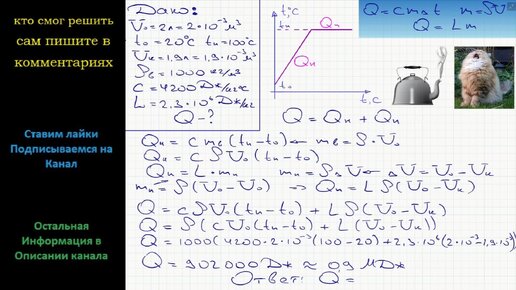 кто смог решить
сам пишите в
комментариях
Ставим лайки
Подписываемся на
Канал
Остальная
Информация в
Описании канала
Дано:
V₀=2л=2·10⁻³м³
t₀=20°C tп=100°C
Vк=1,9л=1,9·10⁻³м³
ρв=1000 кг/м³
c=4200 Дж/кг°C
L=2,3·10⁶ Дж/кг
Q-?
t,°C
tп
Qп
Qн
t₀
t,c
Q=cmΔt m=ρV
Q=Lm
Q=Qн+Qп
Qн=cmв(tп-t₀) mв=ρ·V₀
Qн=cρV₀(tп-t₀)
Qп=L·mп mп=ρΔV ΔV=V₀-Vк
mп=ρ(V₀-Vк) → Qп=Lρ(V₀-Vк)
Q=cρV₀(tп-t₀)+Lρ(V₀-Vк)
Q=ρ(cV₀(tп-t₀)+L(V₀-Vк))
Q=1000(4200·2·10⁻³(100-20)+2,3·10⁶(2·10⁻³-1,9·10⁻³))
Q=902000Дж≈0,9 МДж
Ответ: Q=